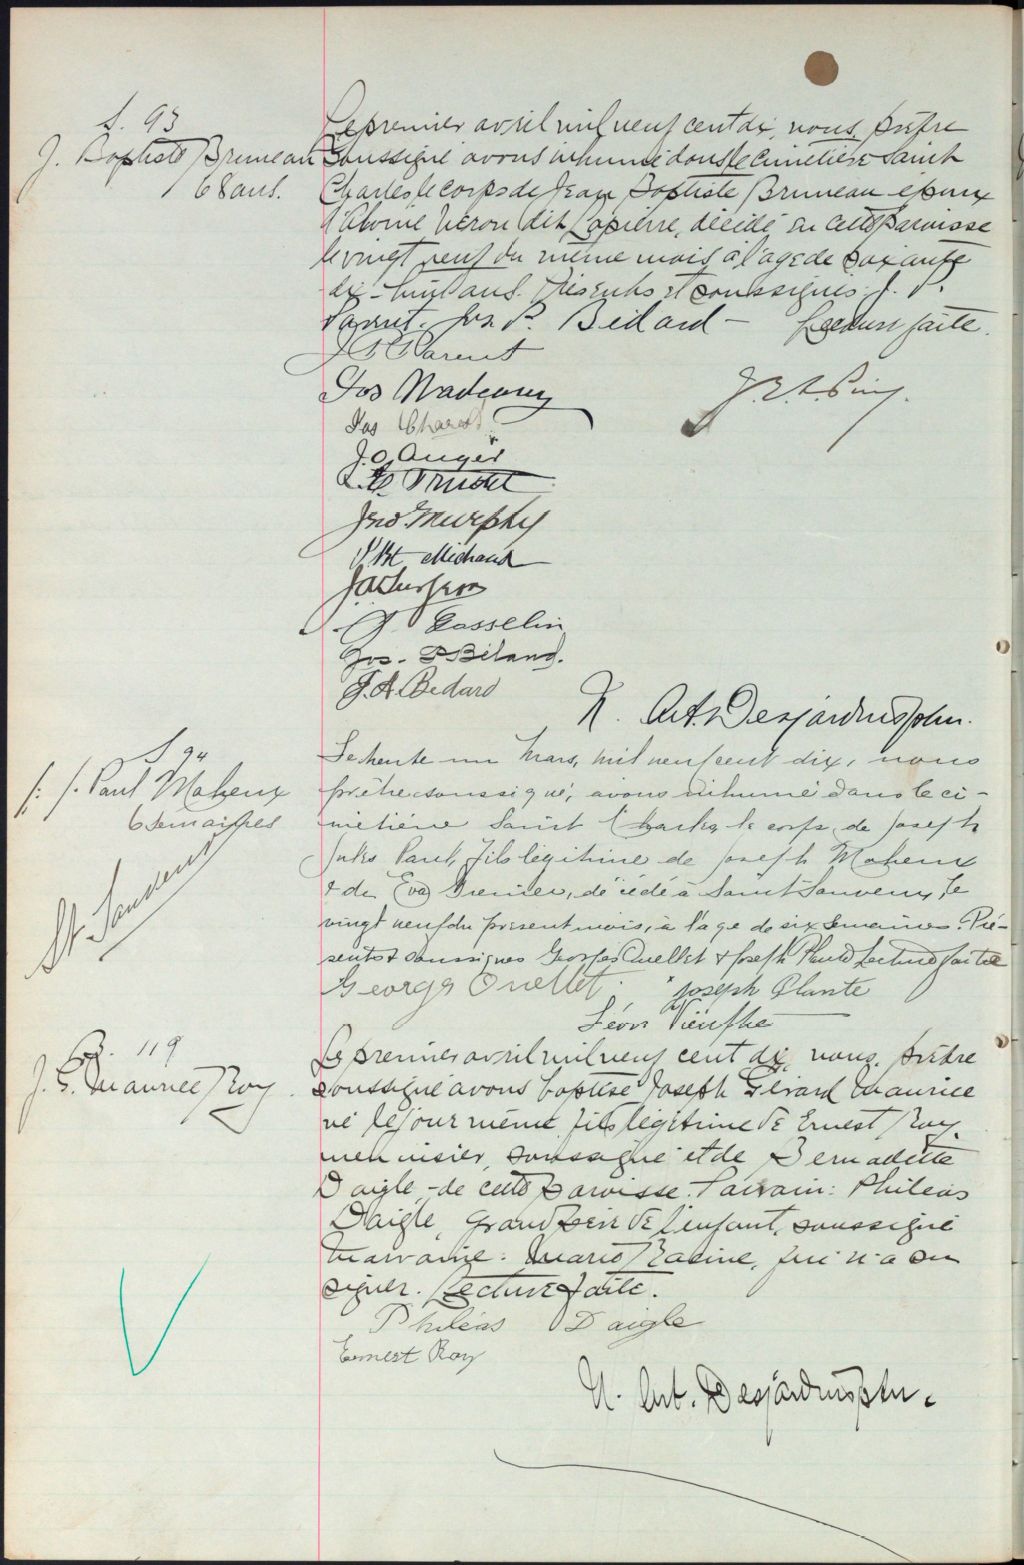 S. 93
J. Baptiste Bruneau
68 ans.
Le premier avril mil neuf cent dix, nous, prêtre
soussigné avons inhumé dans le cimetière Saint
Charles, le corps de Jean Baptiste Bruneau époux
d'Alvine Véron dit Lapierre, décédé en cette paroisse
le vingt neuf du même mois à l'age de soixante
dix-huit ans. Présents et soussignés: J. P.
Parent. Jos. P. Bédard - Lecture faite.
J P Parent
Jos Nadeau
Jos Charest
J. O. Auger
Trudel
Jno. Murphy
J Bt Michaud
J. Gosselin
Jos. P Béland.
J. A. Bedard
N. Art. Desjardins ptre.
S 94
J. J. Paul Maheux
6 semaines
St Sauveur
Le trente un Mars, mil neuf cent dix, nous
prêtre soussigné, avons inhumé dans le ci-
metière Saint Charles le corps de Joseph
Jules Paul, fils légitime de Joseph Maheux
& de Eva Grenier, décédé à Saint Sauveur, le
vingt neuf du présent mois, à l'age de six semaines. Pré-
sents & soussignés Georges Ouellet & Joseph Plante Lecture faite
George Ouellet. Joseph Plante
Léon Vieuf
B. 119
J. G. Maurice Roy
Le premier avril mil neuf cent dix, nous, prêtre
soussigné avons baptisé Joseph Gérard Maurice
né le jour même fils légitime de Ernest Roy,
menuisier, soussigné et de Bernadette
Daigle, de cette paroisse. Parrain: Philéas
Daigle, grand père de l'enfant, soussigné
Marraine: Marie Racine, qui n'a su
signer. Lecture faite.
Philéas Daigle
Ernest Roy
N. Art. Desjardins ptre.